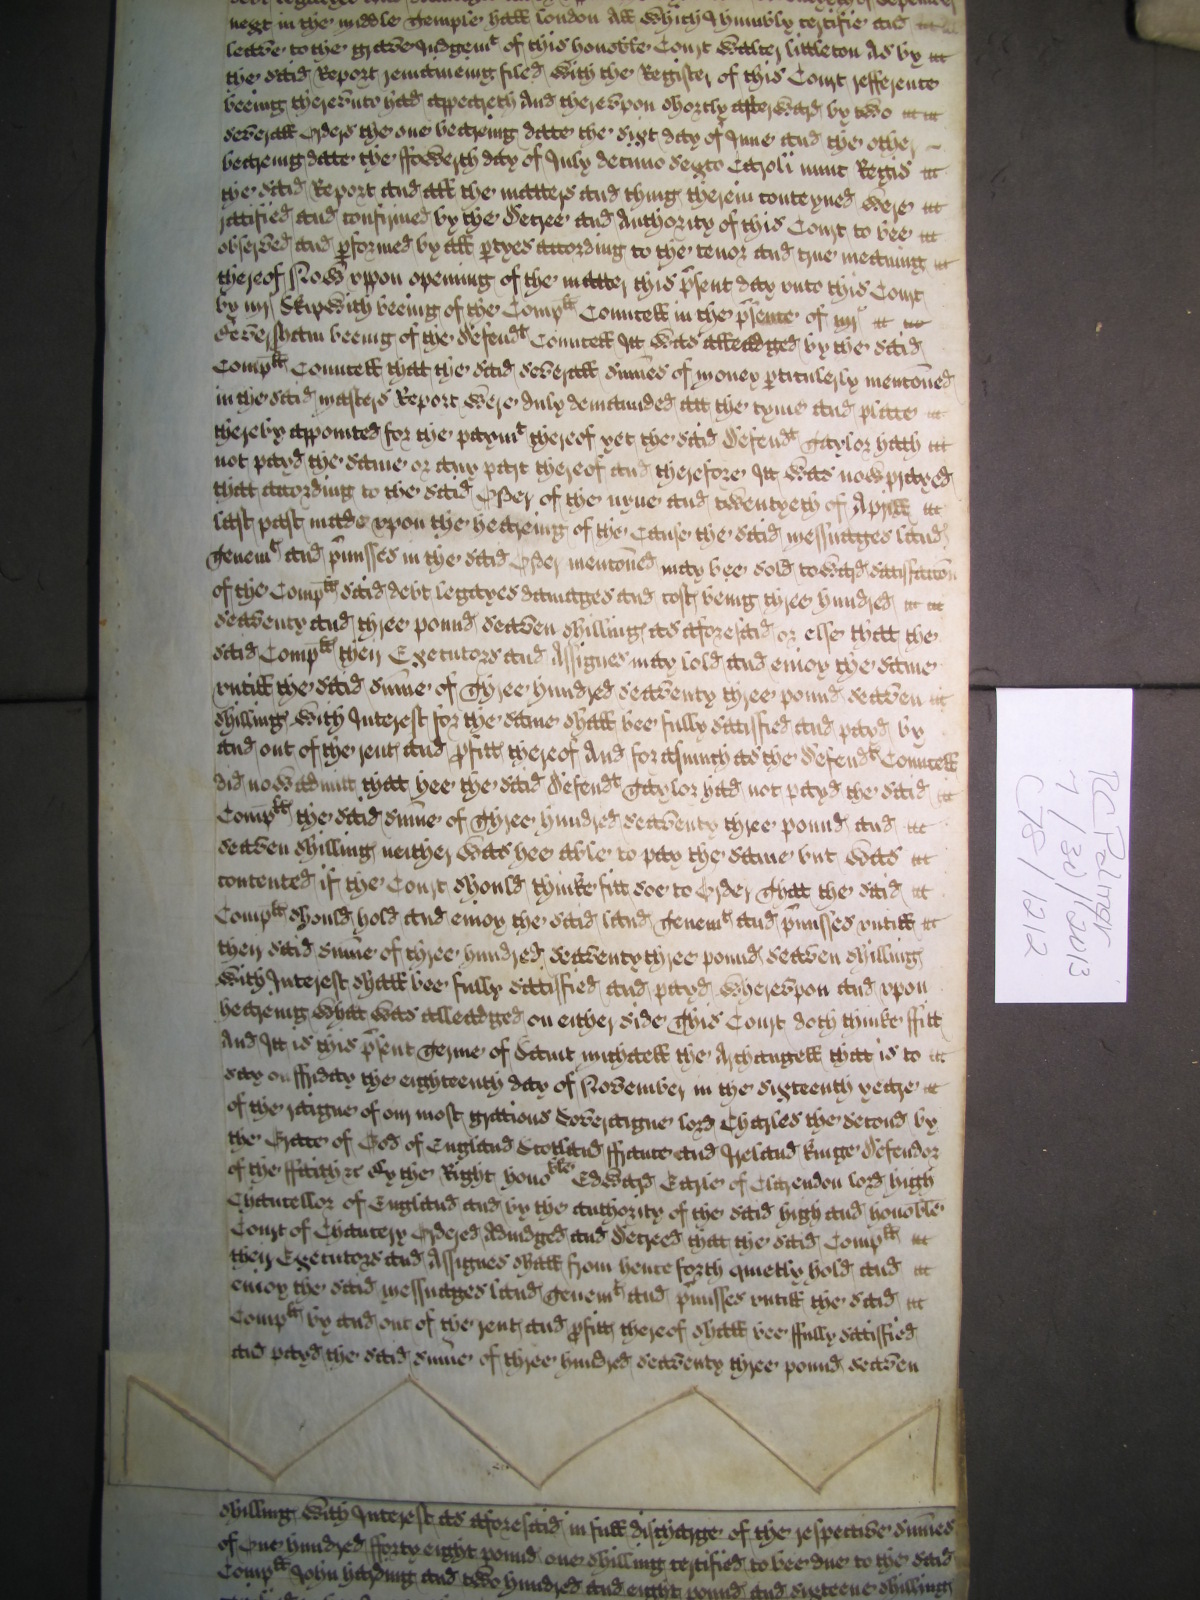 next in the middle Temple hall london All which I humbly certifie and
leave to the grave Judgemt of this honoble Court Walter littleton As by
the said Report remaineing filed with the Register of this Court refference
beeing thereunto had appeareth And thereupon shortly afterward by two
severall Orders the one beareing date the sixt day of June and the other
beareing date the ffowerth day of July decimo sexto Caroli nunc Regis
the said Report and all the matters and thing therein conteyned were
ratified and confirmed by the decree and Authority of this Court to bee
observed and pformed by all ptyes according to the tenor and true meaning
thereof Now uppon opening of the matter this psent day unto this Court
by mr Skipwith beeing of the Complts Councell in the psence of mr
ffeversham beeing of the defendts Councell Itt was alleadged by the said
Complts Councell that the said severall sumes of money pticulerly menconed
in the said masters Report were duly demaunded att the tyme and place
thereby appointed for the paymt thereof yet the said Defendt Taylor hath
not payd the same or any part thereof and therefore Itt was now prayed
that according to the said Order of the nyne and twentyeth of Aprill
last past made upon the heareing of the Cause the said messuages land
Tenemts and pmisses in the said Order menconed may bee sold toward satisfaccon
of the Complts said debt legacyes damages and cost being three hundred
seaventy and three pound seaven shilling as aforesaid or else that the
said Complts their Executors and Assignes may hold and enioy the same
untill the said sume of Three hundred seaventy three pound seaven
shilling with Interest for the same shall bee fully satisfied and payd by
and out of the rent and pfitt thereof And forasmuch as the Defendts Councell
did now admitt that hee the said Defendt Taylor had not payd the said
Complts the said sume of Three hundred seaventy three pound and
seaven shilling neither was hee able to pay the same but was
contented if the Court should thinke fitt soe to Order That the said
Complts should hold and enioy the said land Tenemts and pmisses untill
their said sume of three hundred seaventy three pound seaven shilling
with Interest shall bee fully satisfied and payd whereupon and upon
heareing what was alleadged on either side This Court doth thinke ffitt
And Itt is this psent Terme of Saint michaell the Archangell that is to
say on ffriday the eighteenth day of November in the sixteenth yeare
of the raigne of our most gratious Soveraigne lord Charles the second by
the Grace of God of England Scotland ffrance and Ireland Kinge Defendor
of the ffaith &c By the Right honoble Edward Earle of Clarendon lord high
Chancellor of England and by the authority of the said high and honoble
Court of Chancery Ordered Adiudged and decreed that the said Complts
their Executors and Assignes shall from hence forth quietly hold and
enioy the said messuages land Tenemts and pmisses untill the said
Complts by and out of the rent and pfitt thereof shall bee ffully satisfied
and payd the said sume of three hundred seaventy three pound seaven
shilling with Interest as aforesaid in full discharge of the respective sumes
of One hundred fforty eight pound one shilling certified to bee due to the said
Complt John harding and two hundred and eight pound and sixteene shilling
RC Palmer
7/30/2013
C78/1212